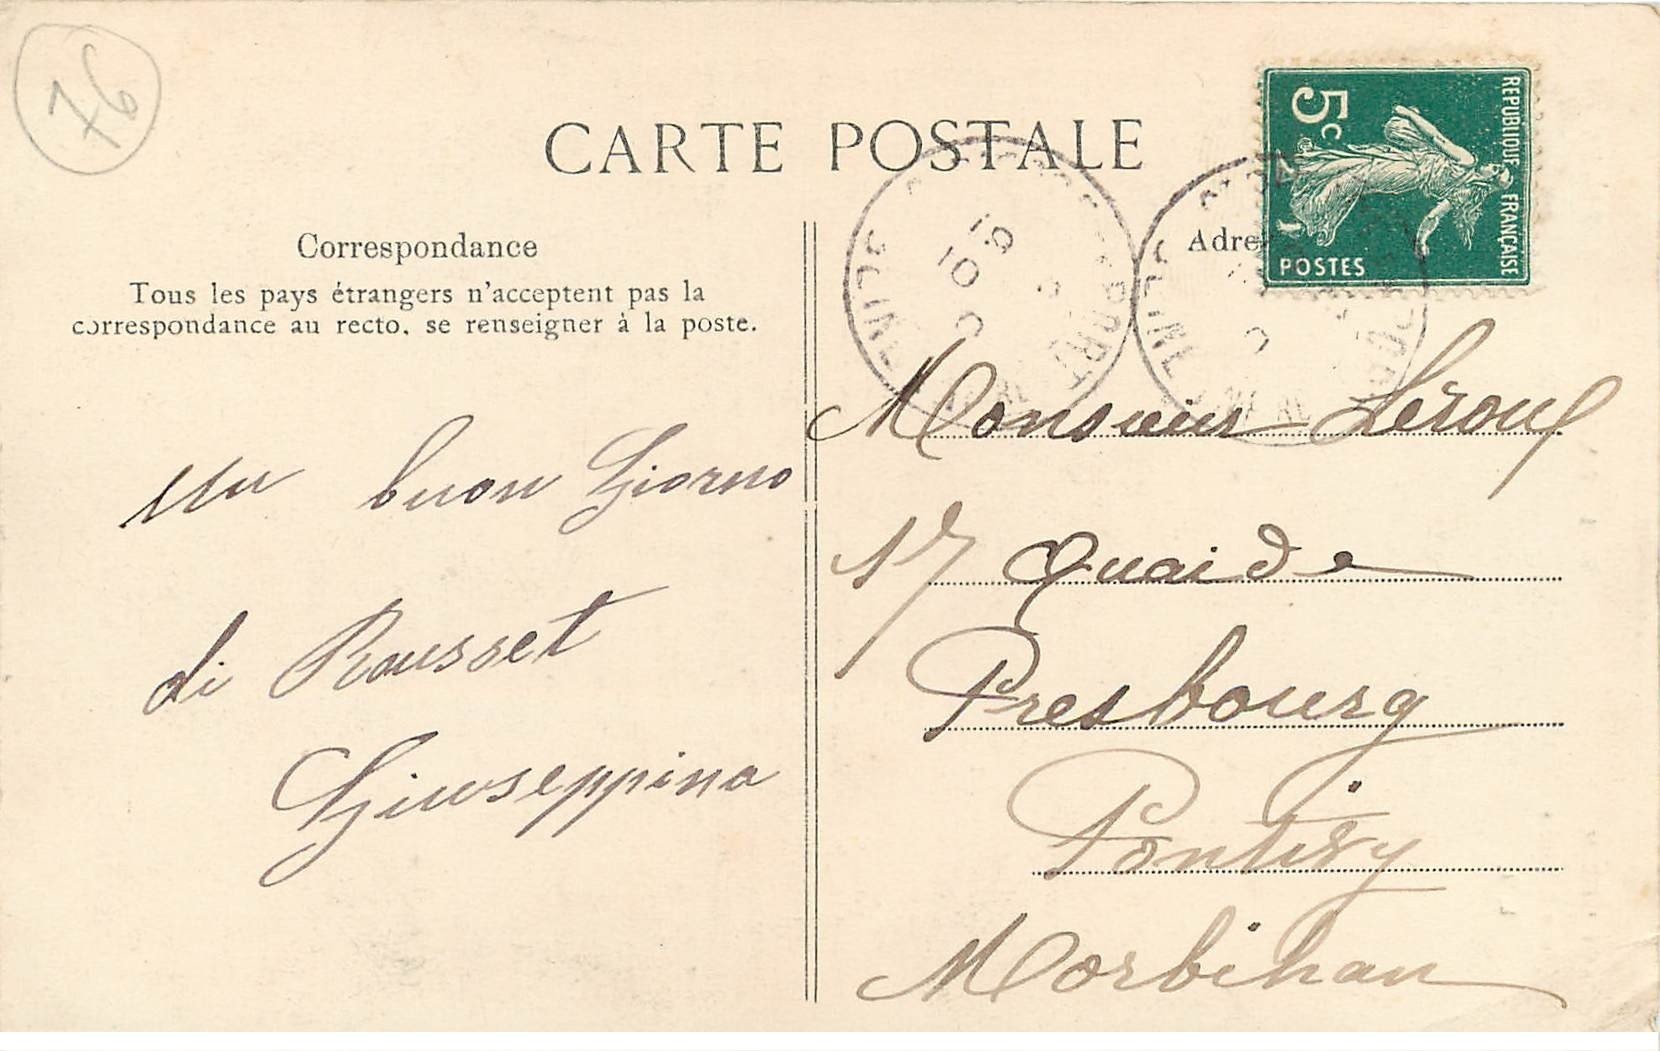 76
CARTE POSTALE
REPUBLIQUE FRANÇAISE
5c
POSTES
Correspondance
Tous les pays étrangers n'acceptent pas la
correspondance au recto, se renseigner à la poste.
Adre
un buon Giorno
di Rousset
Giuseppina
Monsieur Leroux
17 Quai de
Presbourg
Pontivy
Morbihan